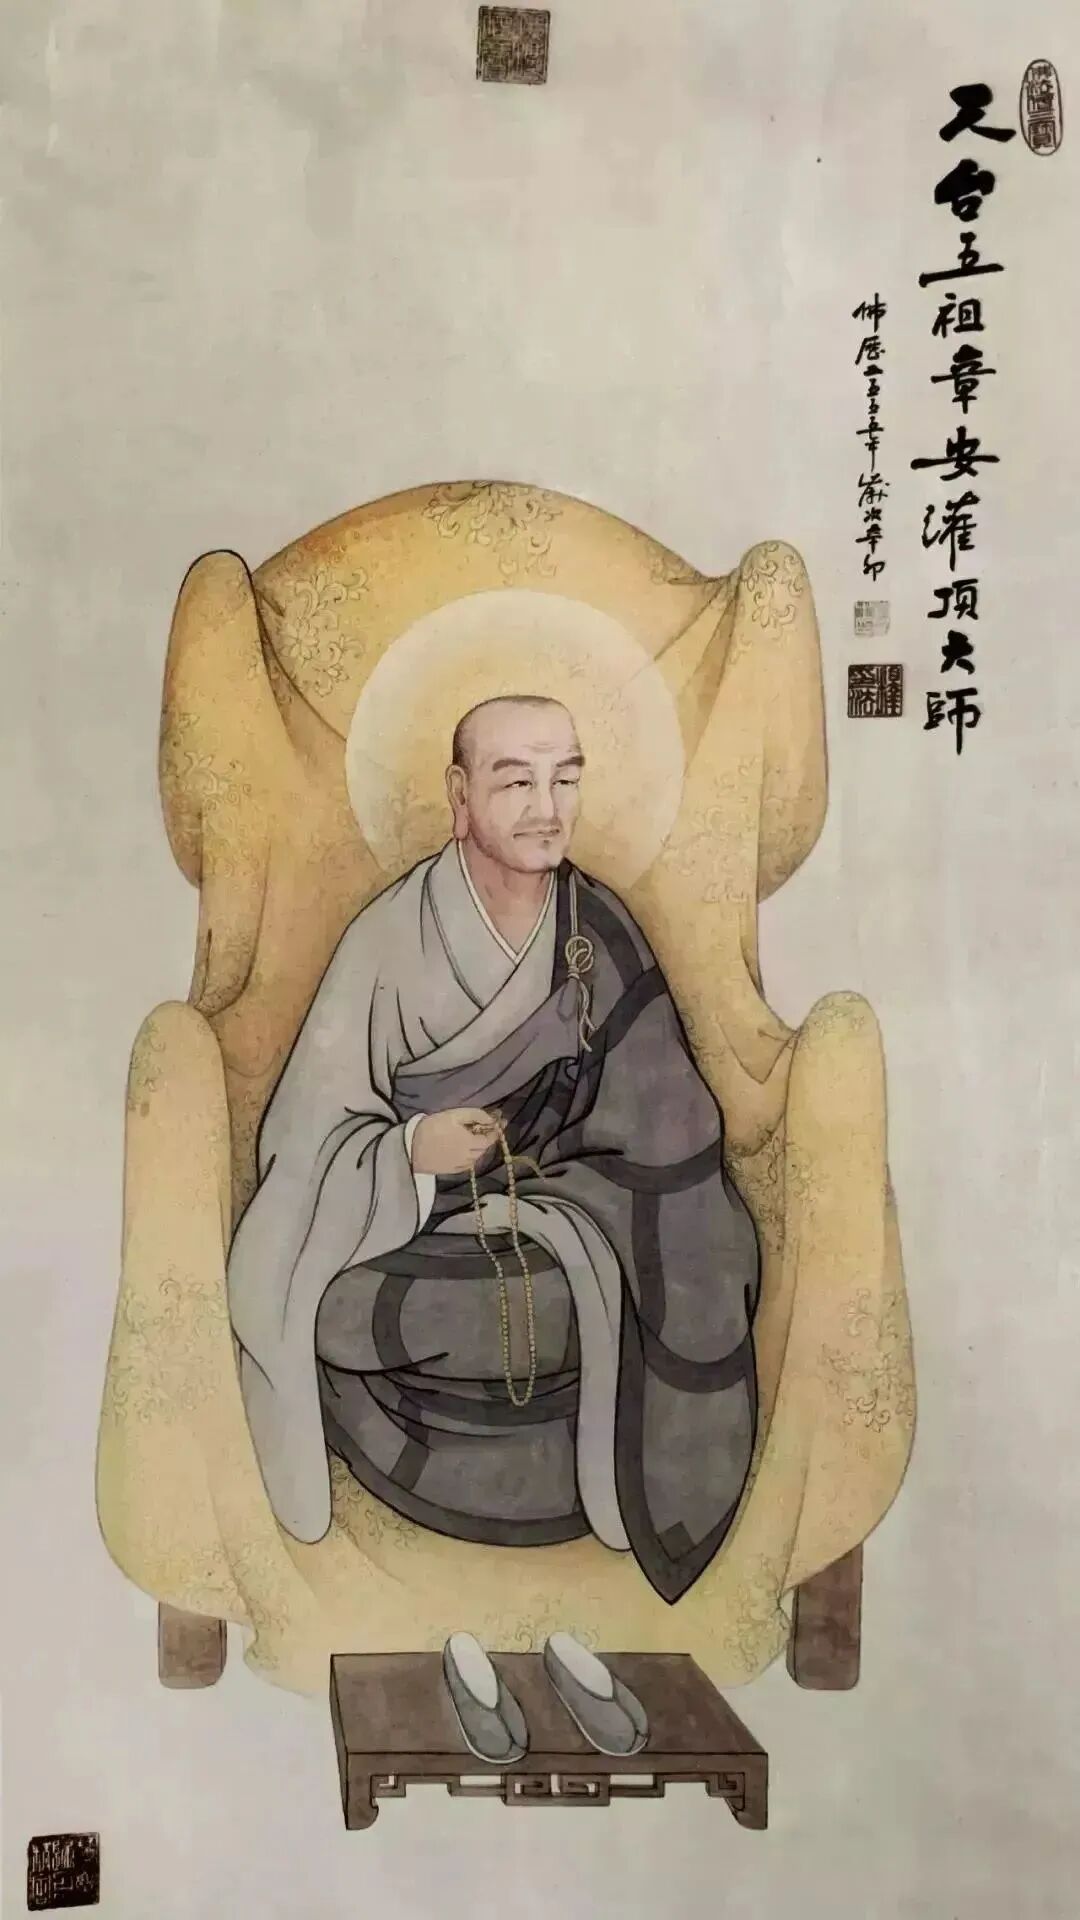 天台五祖章安灌顶大師
佛历二五五五年歲次辛卯